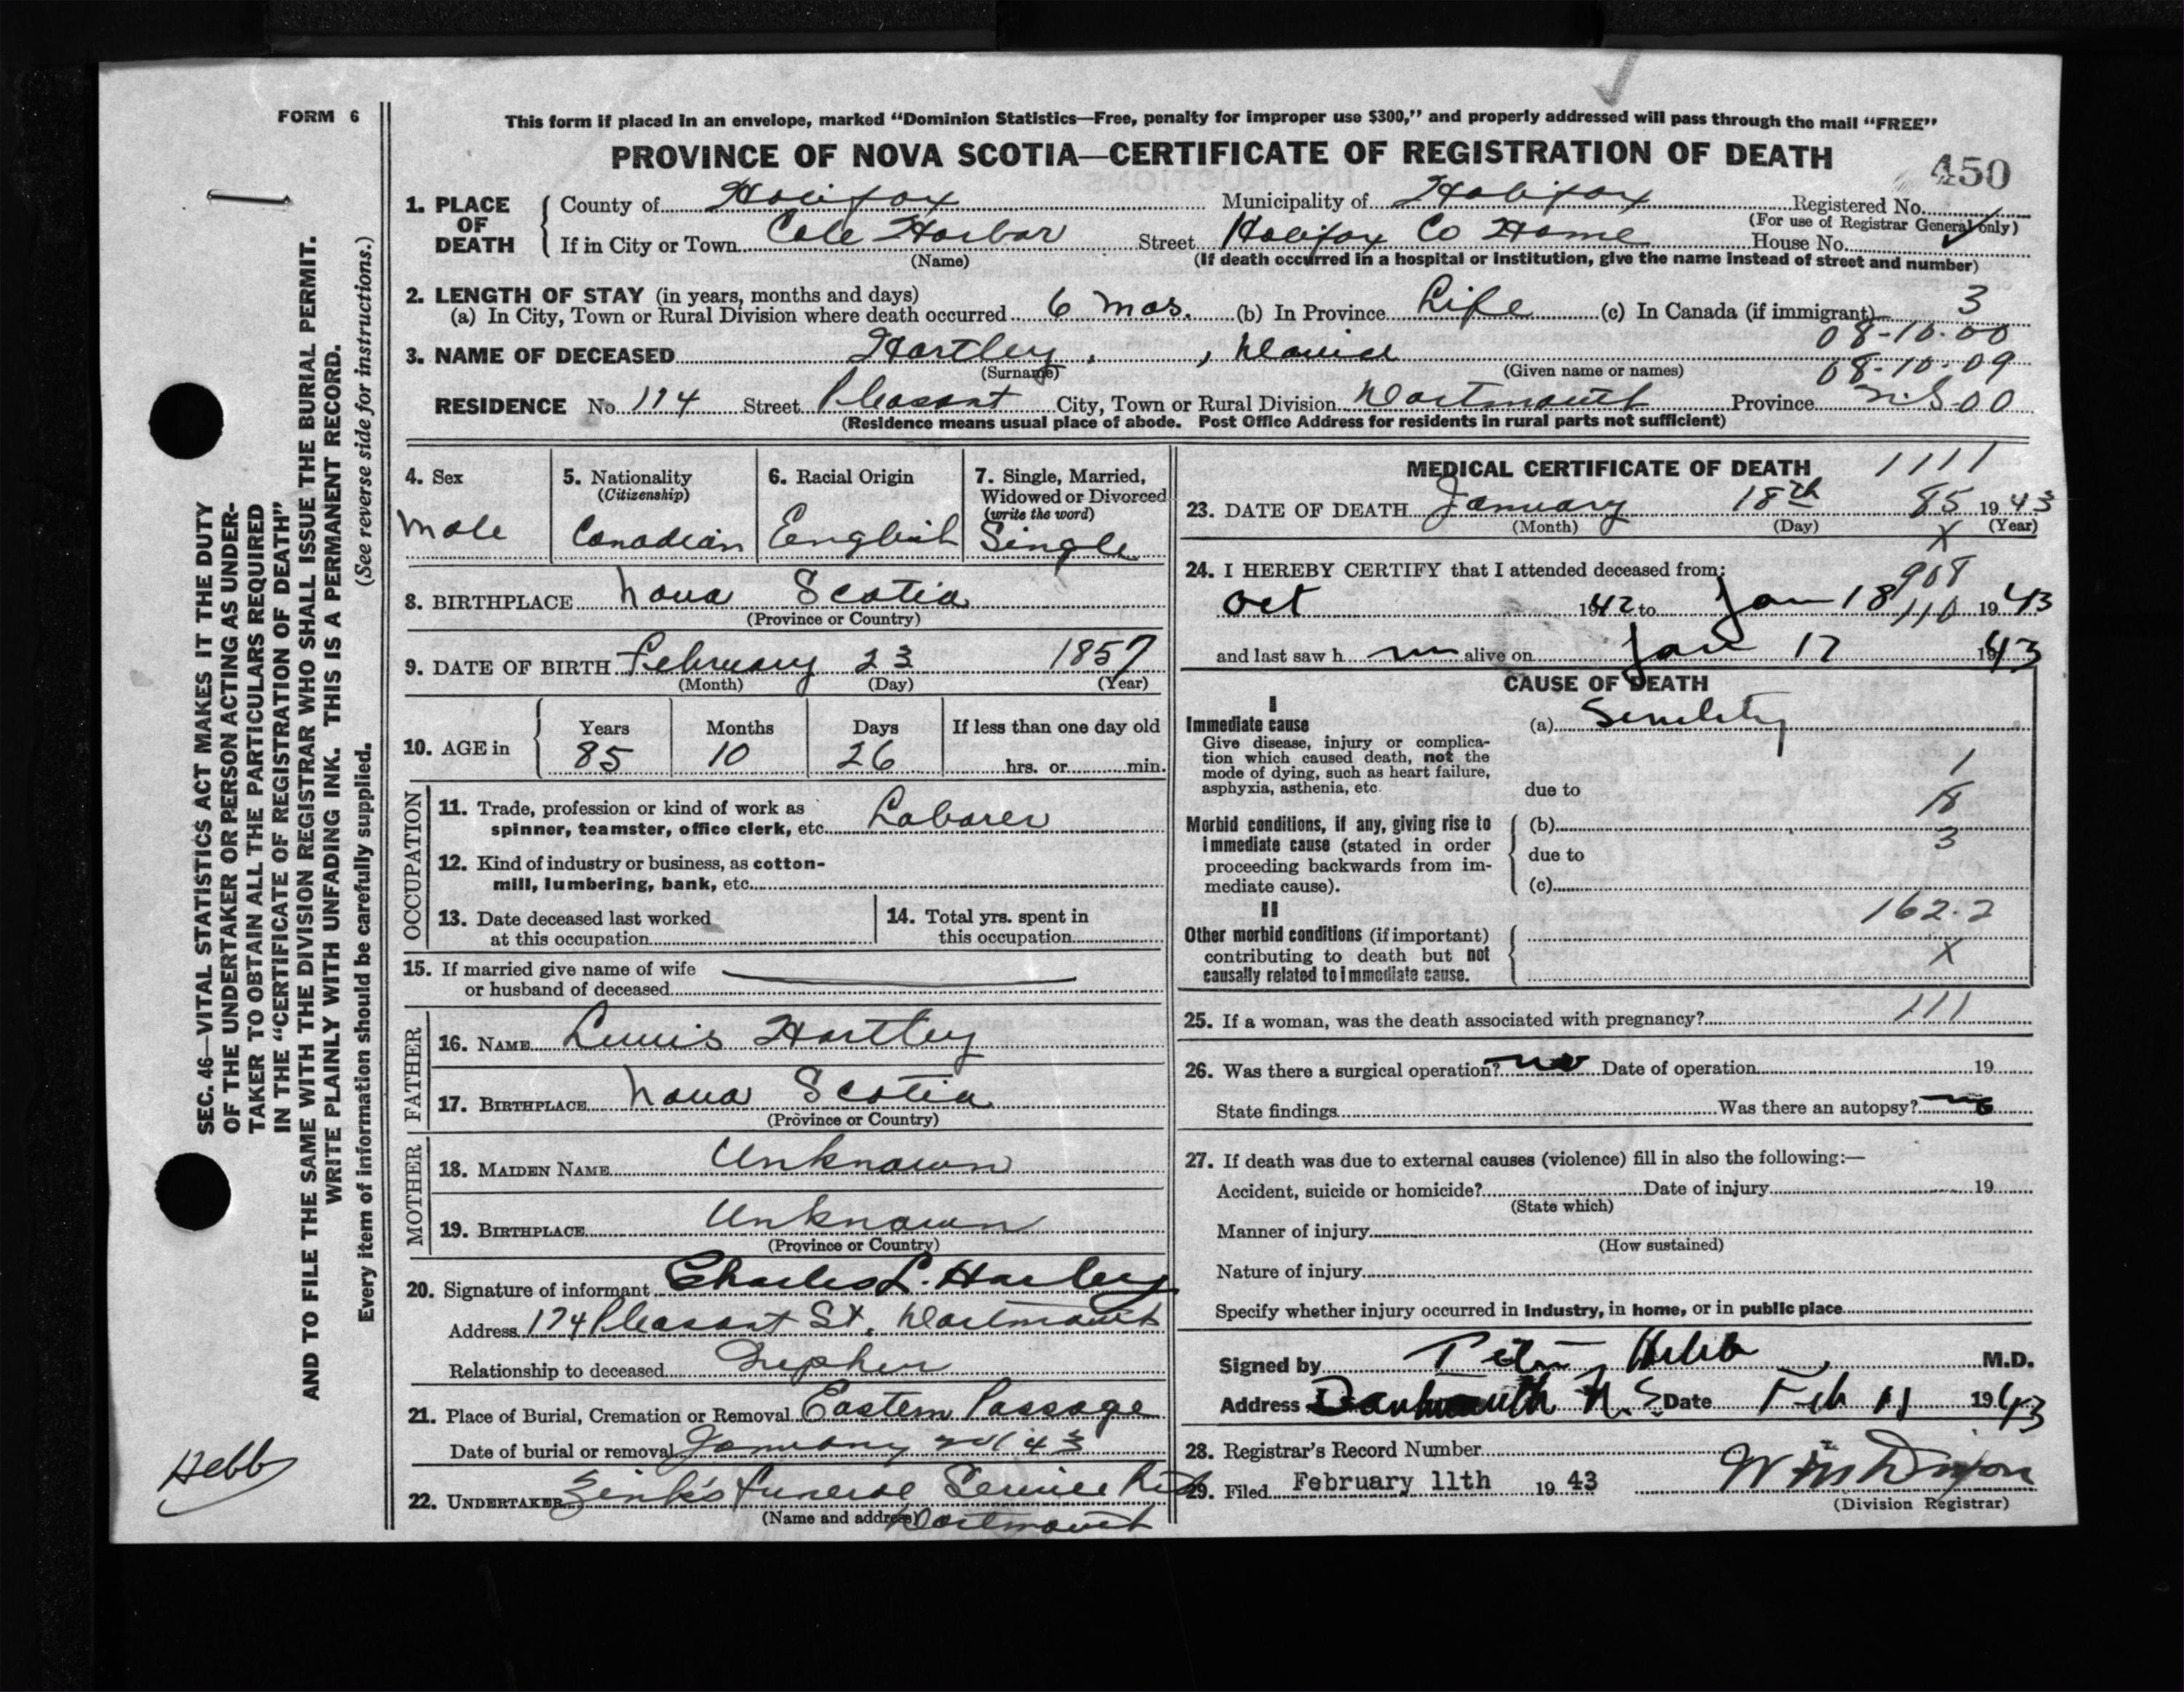 FORM 6
This form if placed in an envelope, marked “Dominion Statistics—Free, penalty for improper use $300,” and properly addressed will pass through the mail “FREE”
PROVINCE OF NOVA SCOTIA—CERTIFICATE OF REGISTRATION OF DEATH
450
1. PLACE OF DEATH
County of Halifax Municipality of Halifax Registered No.
(For use of Registrar General only)
If in City or Town Cole Harbor Street Halifax Co Home House No.
(Name) (If death occurred in a hospital or institution, give the name instead of street and number)
2. LENGTH OF STAY (in years, months and days)
(a) In City, Town or Rural Division where death occurred 6 mos. (b) In Province Life (c) In Canada (if immigrant) 3
08-10-00
3. NAME OF DECEASED Hartley, Daniel
(Surname) (Given name or names) 08-10-09
RESIDENCE No. 174 Street Pleasant City, Town or Rural Division Dartmouth Province N.S 00
(Residence means usual place of abode. Post Office Address for residents in rural parts not sufficient)
4. Sex
Male
5. Nationality
(Citizenship)
Canadian
6. Racial Origin
English
7. Single, Married,
Widowed or Divorced
(write the word)
Single
8. BIRTHPLACE Nova Scotia
(Province or Country)
9. DATE OF BIRTH February 23 1857
(Month) (Day) (Year)
10. AGE in
Years Months Days If less than one day old
85 10 26 hrs. or min.
OCCUPATION
11. Trade, profession or kind of work as
spinner, teamster, office clerk, etc. Laborer
12. Kind of industry or business, as cotton-
mill, lumbering, bank, etc.
13. Date deceased last worked
at this occupation
14. Total yrs. spent in
this occupation
15. If married give name of wife
or husband of deceased
FATHER
16. NAME Hartley
17. BIRTHPLACE Nova Scotia
(Province or Country)
MOTHER
18. MAIDEN NAME Unknown
19. BIRTHPLACE Unknown
(Province or Country)
20. Signature of informant Charles L. Hartley
Address 174 Pleasant St. Dartmouth
Relationship to deceased Nephew
21. Place of Burial, Cremation or Removal Eastern Passage
Date of burial or removal January 43
22. UNDERTAKER Zink's Funeral Service Ltd
(Name and address) Dartmouth
MEDICAL CERTIFICATE OF DEATH 1111
23. DATE OF DEATH January 18th 85 1943
(Month) (Day) (Year)
X
24. I HEREBY CERTIFY that I attended deceased from:
908
Oct 1942 to Jan 18 110 1943
and last saw h im alive on Jan 17 1943
CAUSE OF DEATH
I
Immediate cause
Give disease, injury or complica-
tion which caused death, not the
mode of dying, such as heart failure,
asphyxia, asthenia, etc.
(a) Senility
1
due to
18
Morbid conditions, if any, giving rise to
immediate cause (stated in order
proceeding backwards from im-
mediate cause).
(b)
3
due to
(c)
II
162.2
Other morbid conditions (if important)
contributing to death but not
causally related to immediate cause.
X
111
25. If a woman, was the death associated with pregnancy?
26. Was there a surgical operation? no Date of operation 19
State findings Was there an autopsy? no
27. If death was due to external causes (violence) fill in also the following:—
Accident, suicide or homicide? Date of injury 19
(State which)
Manner of injury
(How sustained)
Nature of injury
Specify whether injury occurred in industry, in home, or in public place
Signed by Hebb M.D.
Address Dartmouth N.S. Date Feb 11 1943
28. Registrar's Record Number
29. Filed February 11th 1943
(Division Registrar)
SEC. 46—VITAL STATISTICS ACT MAKES IT THE DUTY
OF THE UNDERTAKER OR PERSON ACTING AS UNDER-
TAKER TO OBTAIN ALL THE PARTICULARS REQUIRED
IN THE “CERTIFICATE OF REGISTRATION OF DEATH”
AND TO FILE THE SAME WITH THE DIVISION REGISTRAR WHO SHALL ISSUE THE BURIAL PERMIT.
WRITE PLAINLY WITH UNFADING INK. THIS IS A PERMANENT RECORD.
Every item of information should be carefully supplied. (See reverse side for instructions.)
Hebb